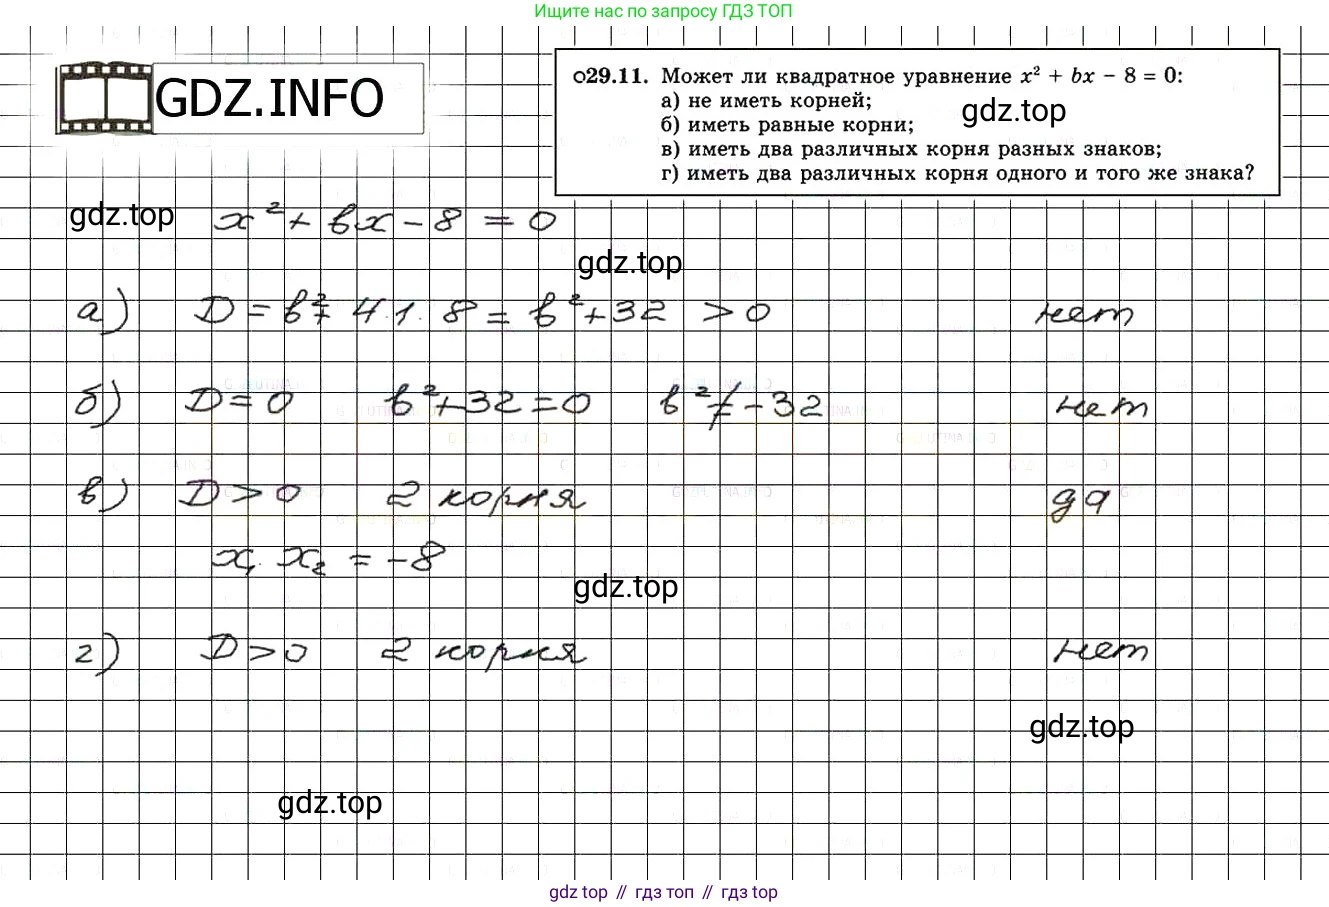 Ищите нас по запросу ГДЗ ТОП
GDZ.INFO
О29.11. Может ли квадратное уравнение x² + bx − 8 = 0:
а) не иметь корней;
gdz.top
б) иметь равные корни;
в) иметь два различных корня разных знаков;
г) иметь два различных корня одного и того же знака?
gdz.top
x² + bx − 8 = 0
gdz.top
а) D = b² + 4·1·8 = b² + 32 > 0 нет
б) D = 0 b² + 32 = 0 b² ≠ −32 нет
в) D > 0 2 корня да
x₁·x₂ = −8
gdz.top
г) D > 0 2 корня нет
gdz.top
gdz.top
gdz top // гдз топ // гдз top